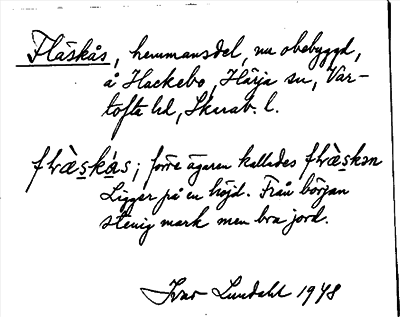 Fläskås, hemmansdel, nu obebyggd,
å Hackebo, Härja sn, Var-
tofta hd, Skarab. l.
flὰskås; förre ägaren kallades flὰskən
Ligger på en höjd. Från början
stenig mark men bra jord.
Ivar Lundahl 1948